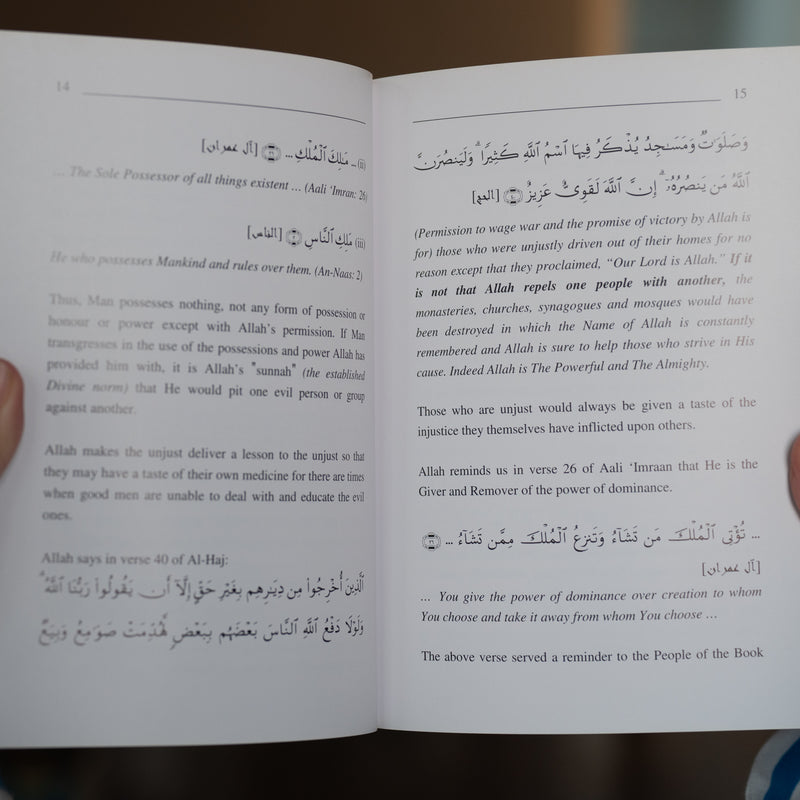 14
(ii) ... مَـٰلِكَ ٱلْمُلْكِ ... ﴿٢٦﴾ [آل عمران]
... The Sole Possessor of all things existent ... (Aali ‘Imran: 26)
(iii) مَلِكِ ٱلنَّاسِ ﴿٢﴾ [الناس]
He who possesses Mankind and rules over them. (An-Naas: 2)
Thus, Man possesses nothing, not any form of possession or
honour or power except with Allah’s permission. If Man
transgresses in the use of the possessions and power Allah has
provided him with, it is Allah’s "sunnah" (the established
Divine norm) that He would pit one evil person or group
against another.
Allah makes the unjust deliver a lesson to the unjust so that
they may have a taste of their own medicine for there are times
when good men are unable to deal with and educate the evil
ones.
Allah says in verse 40 of Al-Haj:
ٱلَّذِينَ أُخْرِجُوا۟ مِن دِيَـٰرِهِم بِغَيْرِ حَقٍّ إِلَّآ أَن يَقُولُوا۟ رَبُّنَا ٱللَّهُ ۗ
وَلَوْلَا دَفْعُ ٱللَّهِ ٱلنَّاسَ بَعْضَهُم بِبَعْضٍ لَّهُدِّمَتْ صَوَٰمِعُ وَبِيَعٌ
15
وَصَلَوَٰتٌ وَمَسَـٰجِدُ يُذْكَرُ فِيهَا ٱسْمُ ٱللَّهِ كَثِيرًا ۗ وَلَيَنصُرَنَّ
ٱللَّهُ مَن يَنصُرُهُۥٓ ۗ إِنَّ ٱللَّهَ لَقَوِىٌّ عَزِيزٌ ﴿٤٠﴾ [الحج]
(Permission to wage war and the promise of victory by Allah is
for) those who were unjustly driven out of their homes for no
reason except that they proclaimed, “Our Lord is Allah.” If it
is not that Allah repels one people with another, the
monasteries, churches, synagogues and mosques would have
been destroyed in which the Name of Allah is constantly
remembered and Allah is sure to help those who strive in His
cause. Indeed Allah is The Powerful and The Almighty.
Those who are unjust would always be given a taste of the
injustice they themselves have inflicted upon others.
Allah reminds us in verse 26 of Aali ‘Imraan that He is the
Giver and Remover of the power of dominance.
... تُؤْتِى ٱلْمُلْكَ مَن تَشَآءُ وَتَنزِعُ ٱلْمُلْكَ مِمَّن تَشَآءُ ... ﴿٢٦﴾
[آل عمران]
... You give the power of dominance over creation to whom
You choose and take it away from whom You choose ...
The above verse served a reminder to the People of the Book